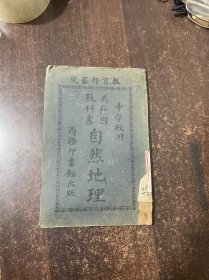 定審部育教
中學校用
共和國教科書
自然地理
商務印書館出版